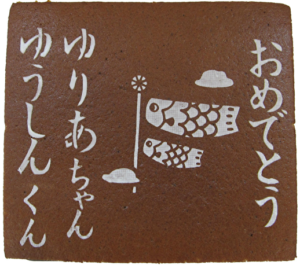 おめでとう
ゆりあちゃん
ゆうしんくん